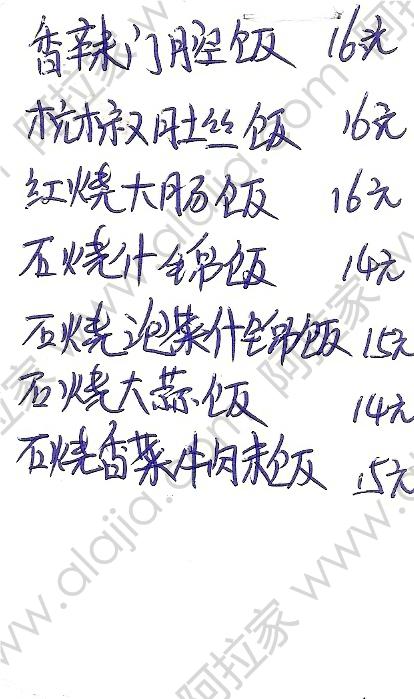 香辣门腔饭 16元
杭椒肚丝饭 16元
红烧大肠饭 16元
石烧什锦饭 14元
石烧泡菜什锦饭 15元
石烧大蒜饭 14元
石烧香菜牛肉末饭 15元
www.alajia.com 阿拉家